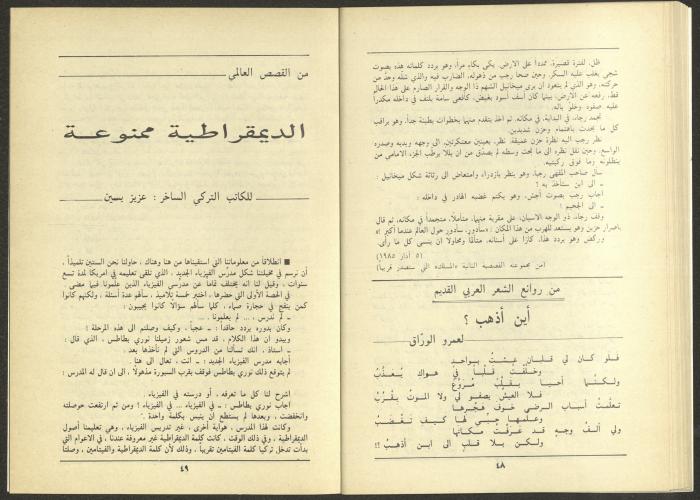 ظل، لفترة قصيرة، ممدداً على الارض، بكى بكاء مراً، وهو يردد كلماته هذه بصوت
شجي يغلب عليه السكر. وحين صحا رجب من ذهوله، الضارب فيه والذي شله وحد من
حركته، وهو الذي لم يتعود ان يرى ميخائيل الشهم ذا الوجه والقرار الصارم على هذا الحال
قط، رفعه عن الارض، بينما كان أسف أسود بغيض، كأفعى سامة يلتف في داخله مكدراً
عليه صفوه وخلو باله.
تجمد رجاء، في البداية، في مكانه. ثم اخذ يتقدم منهما بخطوات بطيئة جداً، وهو يراقب
كل ما يحدث باهتمام وحزن شديدين.
نظر رجب اليه نظرة حزن عميقة. نظر، بعينين معتكرتين، الى وجهه ويديه وصدره
الواسع. وحين نقل نظره الى ما تحت وسطه لم يصدق من ان بللا يرطب الجزء الامامي من
بنطلونه وما فوق ركبتيه.
سأل صاحب المقهى رجبا، وهو ينظر بازدراء وامتعاض الى رثاثة شكل ميخائيل :
ـ الى اين ستأخذ به ؟
اجاب رجب بصوت أجش، وهو يكتم غضبه الهادر في داخله :
ـ الى الجحيم !
وقف رجاء، ذو الوجه الاسيان، على مقربة منهما، متأملا، متجمداً في مكانه. ثم قال
باصرار حزين وهو يستعد للهرب من هذا المكان : «سأدور، سأدور حول العالم عندما أكبر !»
وركض وهو يردد هذا، كازا على أسنانه، متألماً ومحاولا ان ينسى كل ما رأى.
(٥ آذار ١٩٨٥)
(من مجموعته القصصية الثانية «المملكة» التي ستصدر قريباً)
من روائع الشعر العربي القديم
أين أذهب ؟
لعمرو الورّاق
فلو كان لي قلبان عشتُ بواحد
وخلّفتُ قلباً في هواكِ يُعذّبُ
ولكنّما أحيا بقلبٍ مُروّعٍ
فلا العيش يصفو لي ولا الموتُ يقْرُبُ
تعلّمتُ أسباب الرضى خوف هجرها
وعلّمها حبّي لها كيف تغضبُ
ولي ألفُ وجهٍ قد عرفتُ مكانها
ولكن بلا قلبٍ الى اين أذهبُ ؟!
٤٨
من القصص العالمي
الديمقراطية ممنوعة
للكاتب التركي الساخر : عزيز نيسين
■ انطلاقاً من معلوماتنا التي استقيناها من هنا وهناك ، حاولنا نحن الستين تلميذاً ،
أن نرسم في مخيلتنا شكل مدرّس الفيزياء الجديد ، الذي تلقى تعليمه في امريكا لمدة تسع
سنوات ، وقيل لنا انه يختلف تماما عن مدرسي الفيزياء الذين علّمونا فيما مضى .
في الحصة الأولى التي حضرها ، اختبر خمسة تلاميذ ، سألهم عدة أسئلة ، ولكنهم كانوا
كمن ينفخ في حجارة صماء ، كلما سألهم سؤالا كانوا يجيبون :
ـ لم ندرس ، ... لم يعلمونا ...
وكان بدوره يردد حاقداً : ـ عجباً ، وكيف وصلتم الى هذه المرحلة !
ويبدو ان هذا الكلام ، قد مس شعور زميلنا نوري بطاطس ، الذي قال :
ـ استاذ ، انك تسألنا من الدروس التي لم نأخذها بعد .
أجابه مدرس الفيزياء الجديد : ـ انت ، تعال الى هنا .
لم يتوقع ذلك نوري بطاطس فوقف بقرب السبورة مذهولا ، الى ان قال له المدرس :
اشرح لنا كل ما تعرفه ، أو درسته في الفيزياء .
اجاب نوري بطاطس : ـ في الفيزياء ... في الفيزياء ! ومن ثم ارتفعت حوصلته
وانخفضت ، وبعدها لم يستطع أن ينبس بكلمة واحدة .
وكانت لهذا المدرس ، هواية أخرى ، غير تدريس الفيزياء ، وهي تعليمنا أصول
الديمقراطية ، وفي ذلك الوقت ، كانت كلمة الديمقراطية غير معروفة عندنا ، في الاعوام التي
بدأت تدخل تركيا كلمة الفيتامين تقريباً ، وذلك لأن كلمة الديمقراطية والفيتامين ، وصلتا
٤٩